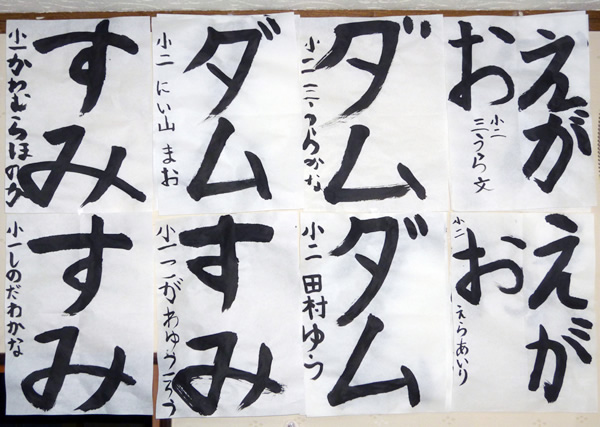 えが
お
小二
三うら文
ダム
小二 三うらかな
ダム
小二 にい山 まお
すみ
小一かわむらほのか
えが
お
小二
えらあいり
ダム
小二 田村ゆう
すみ
小一
すみ
小一しのだわかな